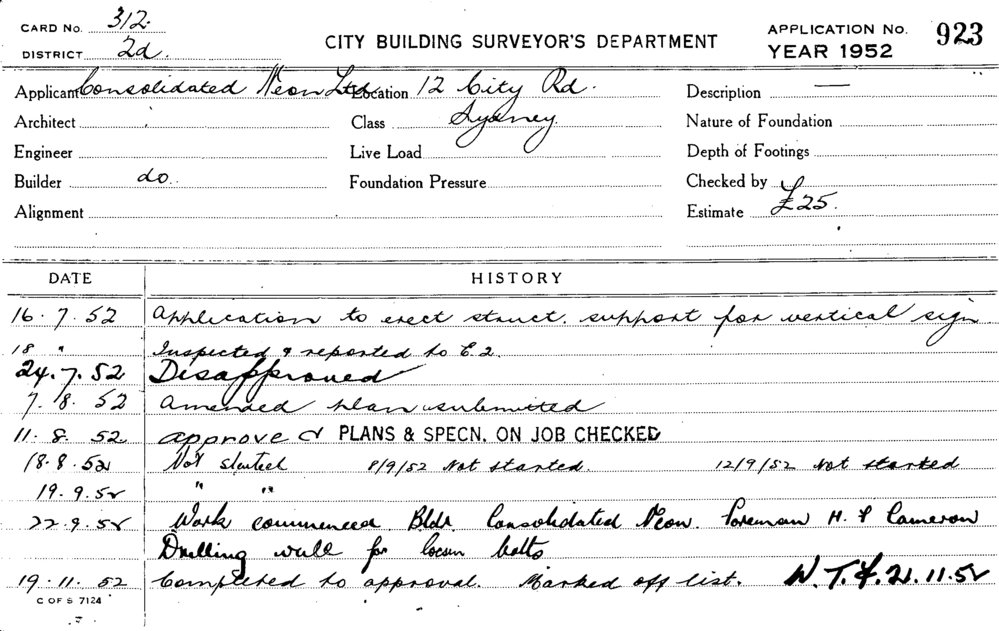 CARD No. 312.
DISTRICT 2d.
CITY BUILDING SURVEYOR'S DEPARTMENT
APPLICATION No. 923
YEAR 1952
Applicant Consolidated Neon Ltd. Location 12 City Rd. Description —
Architect Class Sydney. Nature of Foundation
Engineer Live Load Depth of Footings
Builder do. Foundation Pressure Checked by
Alignment Estimate £25.
DATE HISTORY
16.7.52 Application to erect struct. support for vertical sign
18 " Inspected & reported to E.2.
24.7.52 Disapproved
7.8.52 Amended plan submitted
11.8.52 approved PLANS & SPECN. ON JOB CHECKED
18.8.52 Not started 8/9/52 Not started. 12/9/52 Not started
19.9.52 " "
22.9.52 Work commenced Bldr Consolidated Neon. Foreman H. Cameron
Drilling wall for bolts
19.11.52 Completed to approval. Marked off list. 21.11.52
C OF S 7124